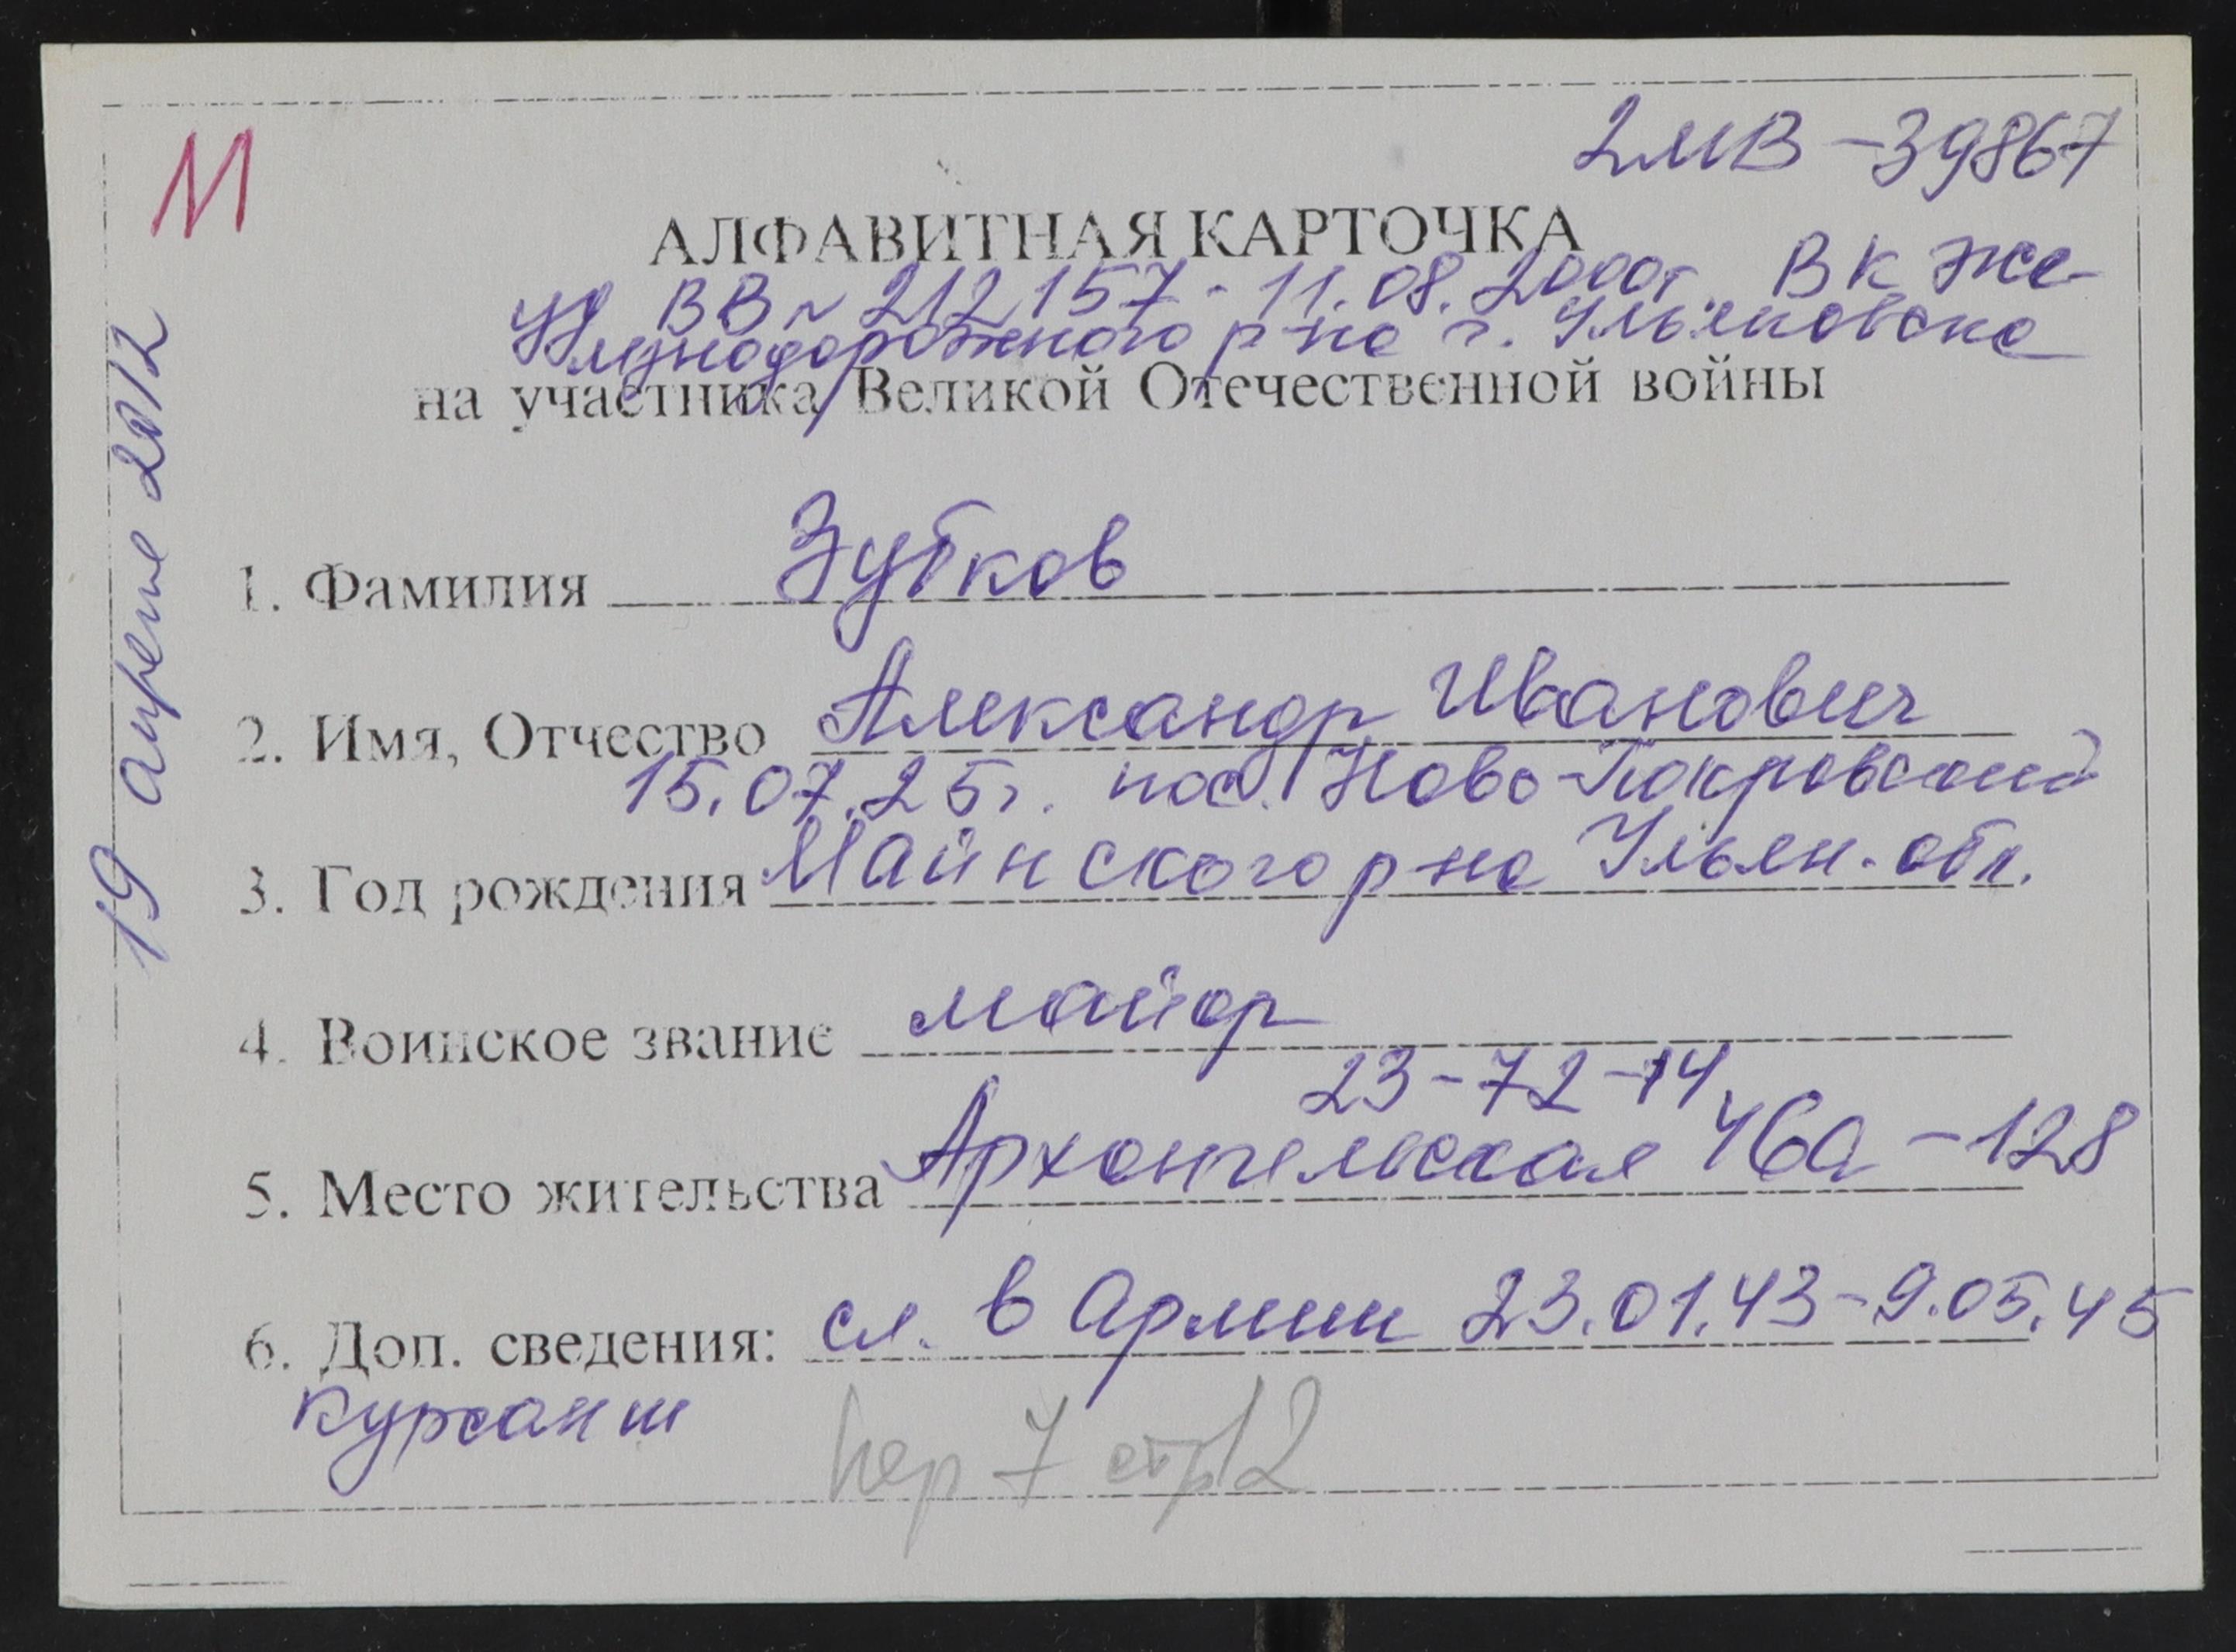 М
2МВ-39867
АЛФАВИТНАЯ КАРТОЧКА
уд ВВ № 212157 - 11.08.2000г. ВК Же-
лезнодорожного р-на г. Ульяновска
на участника Великой Отечественной войны
1. Фамилия Зубков
2. Имя, Отчество Александр Иванович
15.07.25г. пос. Ново-Покровский
3. Год рождения Майнского р-на Ульян. обл.
4. Воинское звание майор
23-72-14
5. Место жительства Архангельская 46а-128
6. Доп. сведения: сл. в Армии 23.01.43-9.05.45
курсант
пер 7 стр 12
19 апреле 2012